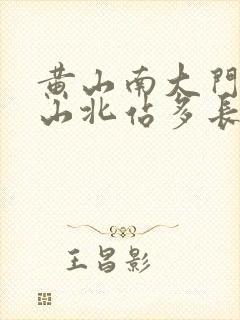 黄山南大門
山北估多長
王昌影